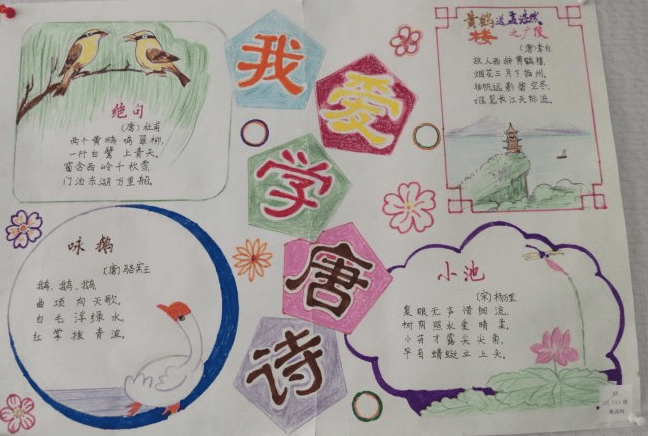 我爱学唐诗
绝句
(唐)杜甫
两个黄鸣鸣翠柳,
一行白鹭上青天。
窗含西岭千秋雪,
门泊东湖万里船。
黄鹤楼送孟浩然之广陵
(唐)李白
故人西辞黄鹤楼,
烟花三月下扬州。
孤帆远影碧空尽,
唯见长江天际流。
咏鹅
(唐)骆宾王
鹅、鹅、鹅,
曲项向天歌。
白毛浮绿水,
红掌拨青波。
小池
(宋)杨万里
泉眼无声惜细流,
树阴照水爱晴柔。
小荷才露尖尖角,
早有蜻蜓立上头。